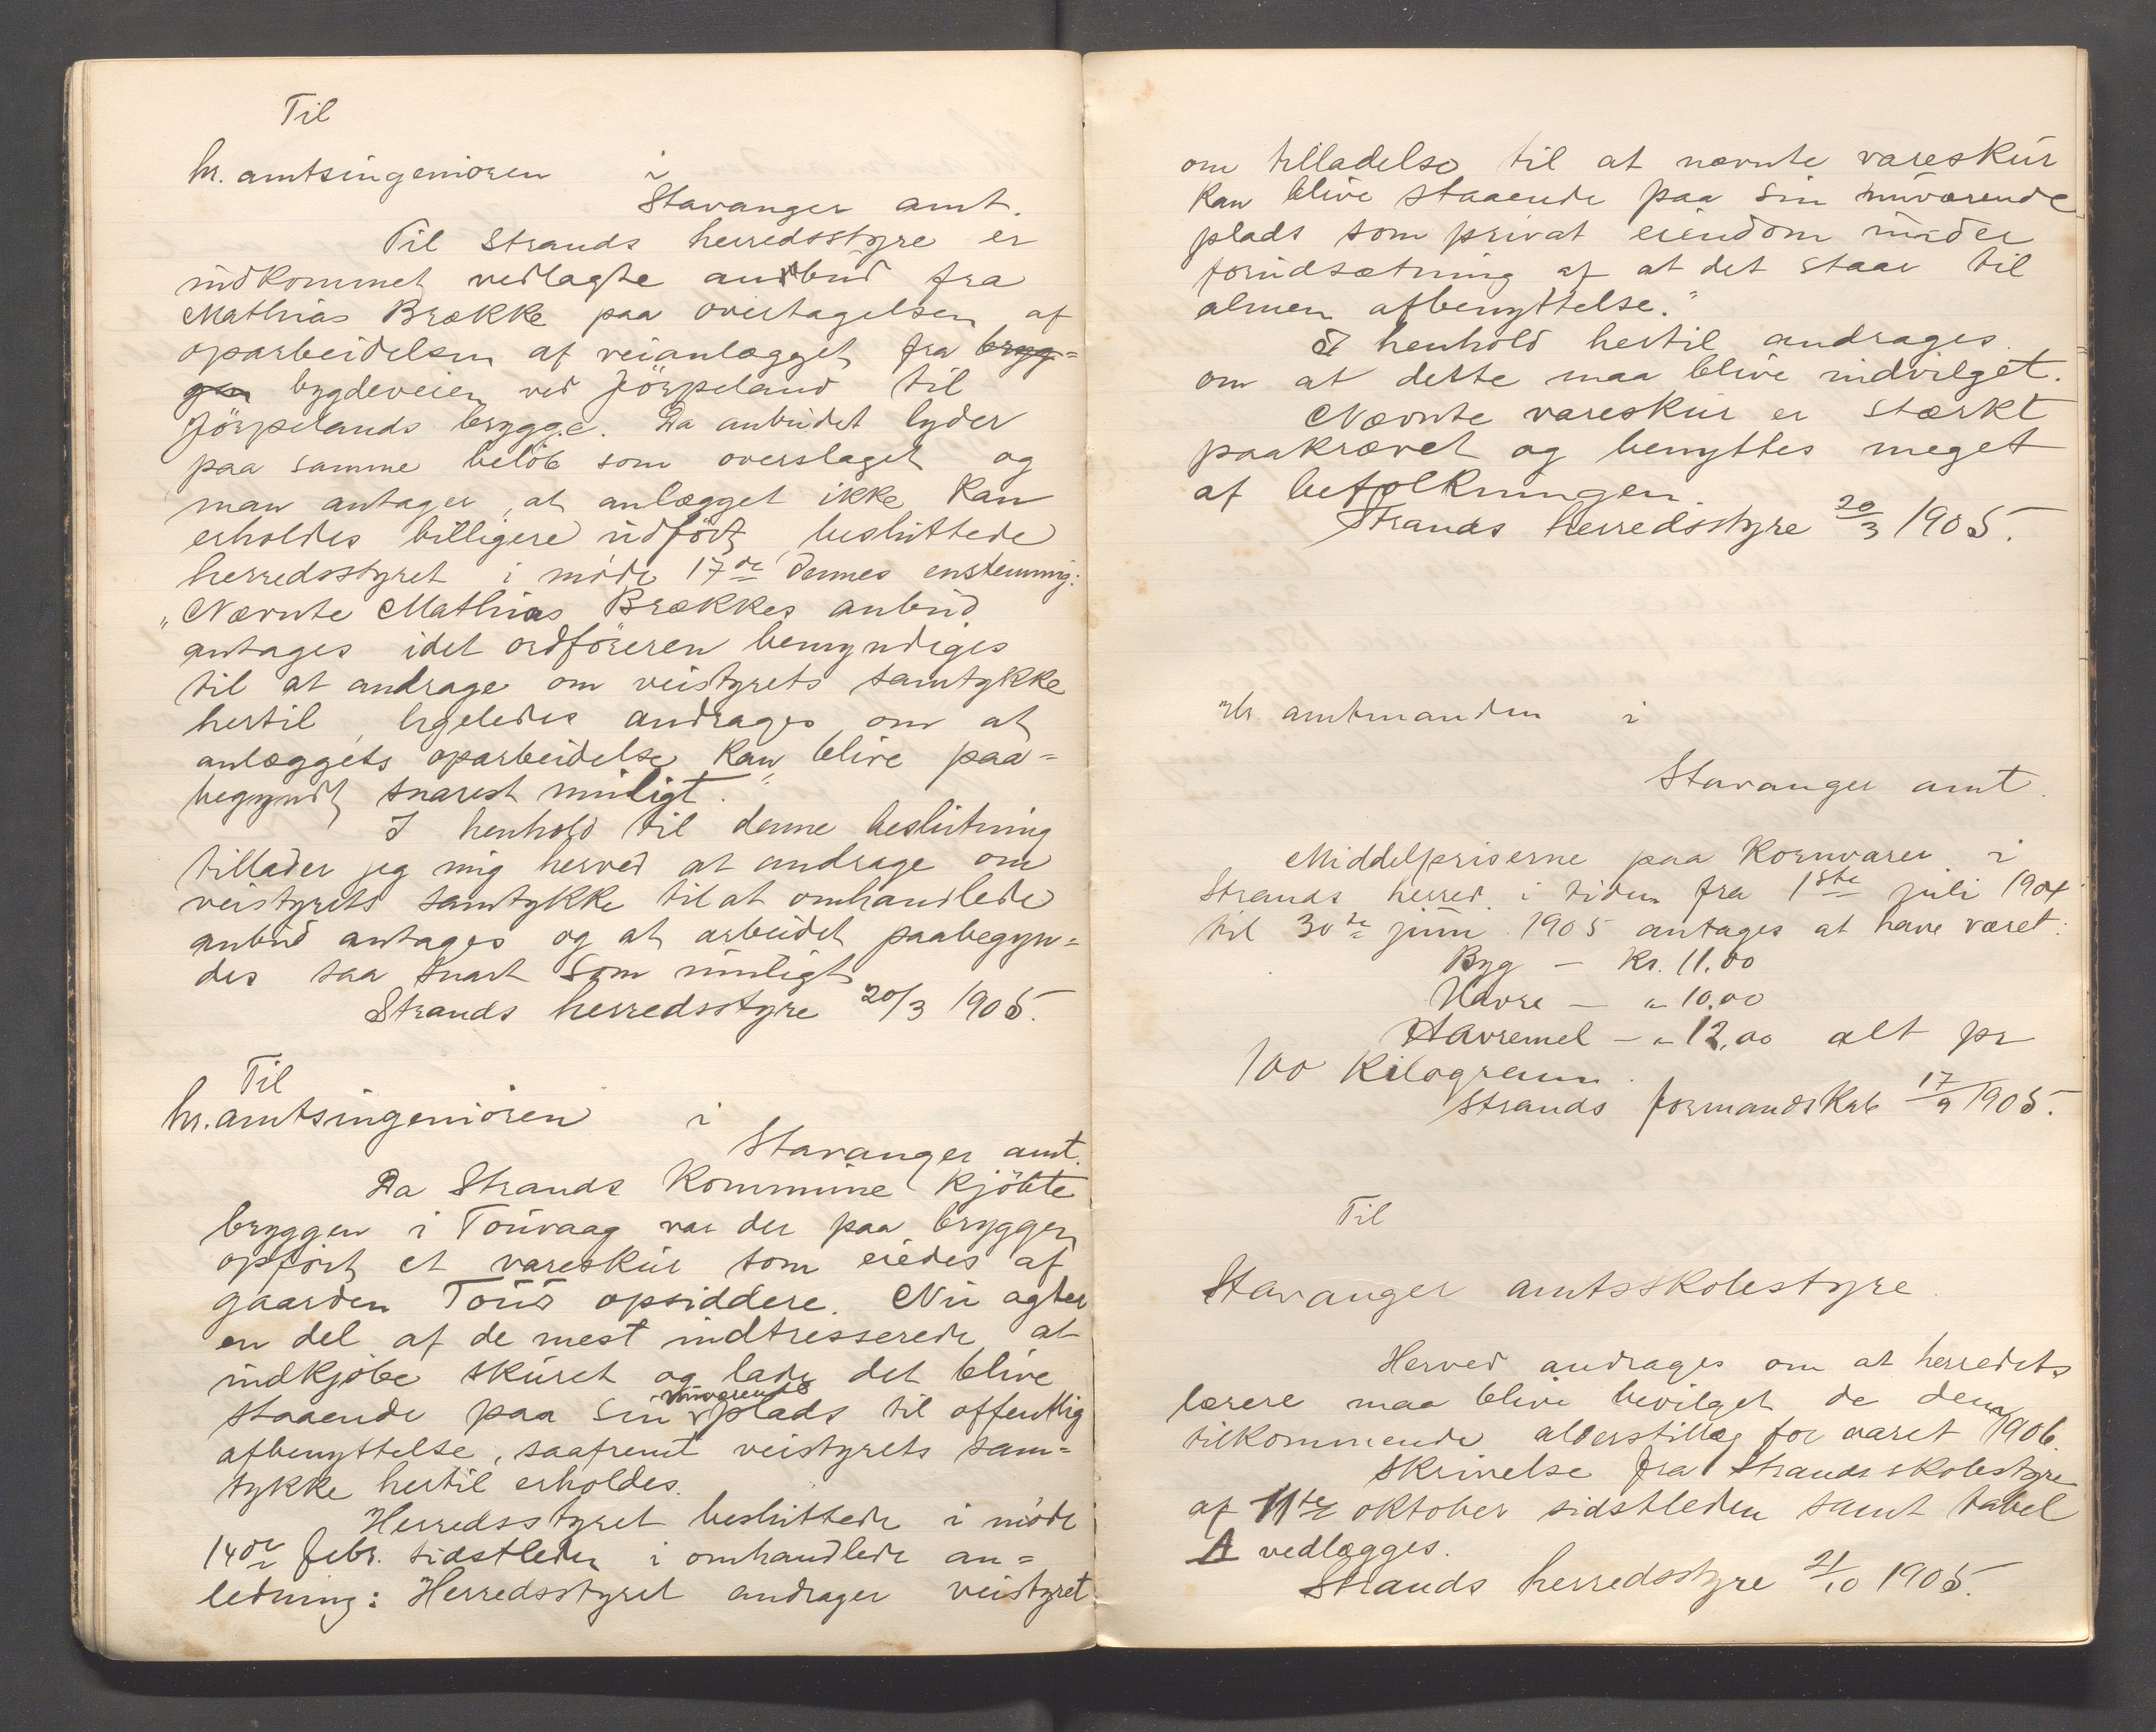 Til
hr. amtsingeniören i
Stavanger amt.
Til Strands herredsstyre er
indkommet vedlagte anbud fra
Mathias Brække paa overtagelsen af
oparbeidelsen af veianlægget fra bryg=
gen bygdeveien ved Jörpeland til
Jörpelands brygge. Da anbudet lyder
paa samme belöb som overslaget og
man antager, at anlægget ikke kan
erholdes billigere udfört, besluttede
herredsstyret i möde 17de dennes enstemmig:
„Nævnte Mathias Brækkes anbud
antages idet ordföreren bemyndiges
til at andrage om veistyrets samtykke
hertil, ligeledes andrages om at
anlæggets oparbeidelse kan blive paa=
begyndt snarest muligt."
I henhold til denne beslutning
tillader jeg mig herved at andrage om
veistyrets samtykke til at omhandlede
anbud antages og at arbeidet paabegyn=
des saa snart som muligt
Strands herredsstyre 20/3 1905.
Til
hr. amtsingeniören i
Stavanger amt.
Da Strands kommune kjöbte
bryggen i Touvaag var der paa bryggen
opfört et vareskur som eiedes af
gaarden Tous opsiddere. Nu agter
en del af de mest indtresserede at
indkjöbe skuret og lade det blive
staaende paa sin nuværende plads til offentlig
afbenyttelse, saafremt veistyrets sam=
tykke hertil erholdes.
Herredsstyret besluttede i möde
14de febr. sidstleden i omhandlede an=
ledning: Herredsstyret andrager veistyret
om tilladelse til at nævnte vareskur
kan blive staaende paa sin nuværende
plads som privat eiendom under
forudsætning af at det staar til
almen afbenyttelse."
I henhold hertil andrages
om at dette maa blive indvilget.
Nævnte vareskur er stærkt
paakrævet og benyttes meget
af befolkningen.
Strands herredsstyre 20/3 1905.
Hr. amtmanden i
Stavanger amt.
Middelpriserne paa kornvarer i
Strands herred i tiden fra 1ste juli 1904
til 30te juni 1905 antages at have været:
Byg – Kr. 11.00
Havre – " 10.00
Havremel – " 12.00 alt pr
100 Kilogram.
Strands formandskab 17/9 1905.
Til
Stavanger amtsskolestyre.
Herved andrages om at herredets
lærere maa blive bevilget de dem
tilkommende alderstillæg for aaret 1906.
Skrivelse fra Strands skolestyre
af 11te oktober sidstleden samt tabel
A vedlægges.
Strands herredsstyre 21/10 1905.